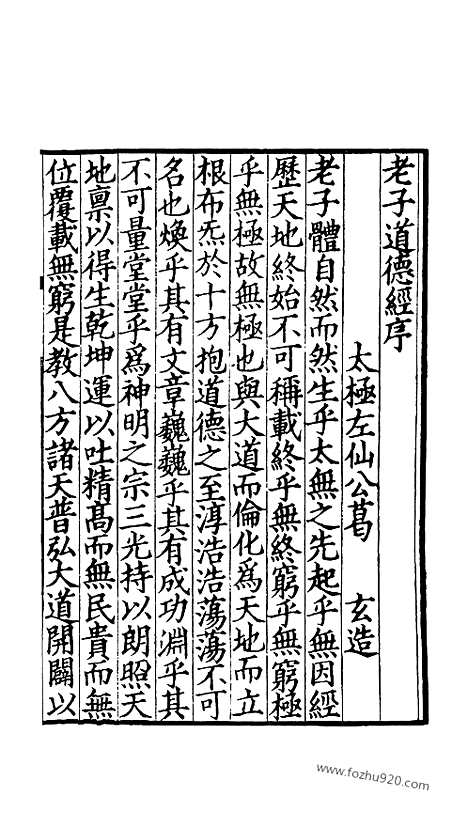 老子道德經序
太極左仙公葛　玄造
老子體自然而然生乎太無之先起乎無因經
歷天地終始不可稱載終乎無終窮乎無窮極
乎無極故無極也與大道而倫化爲天地而立
根布炁於十方抱道德之至淳浩浩蕩蕩不可
名也煥乎其有文章巍巍乎其有成功淵乎其
不可量堂堂乎爲神明之宗三光持以朗照天
地禀以得生乾坤運以吐精高而無民貴而無
位覆載無窮是教八方諸天普弘大道開闢以
www.fozhu920.com